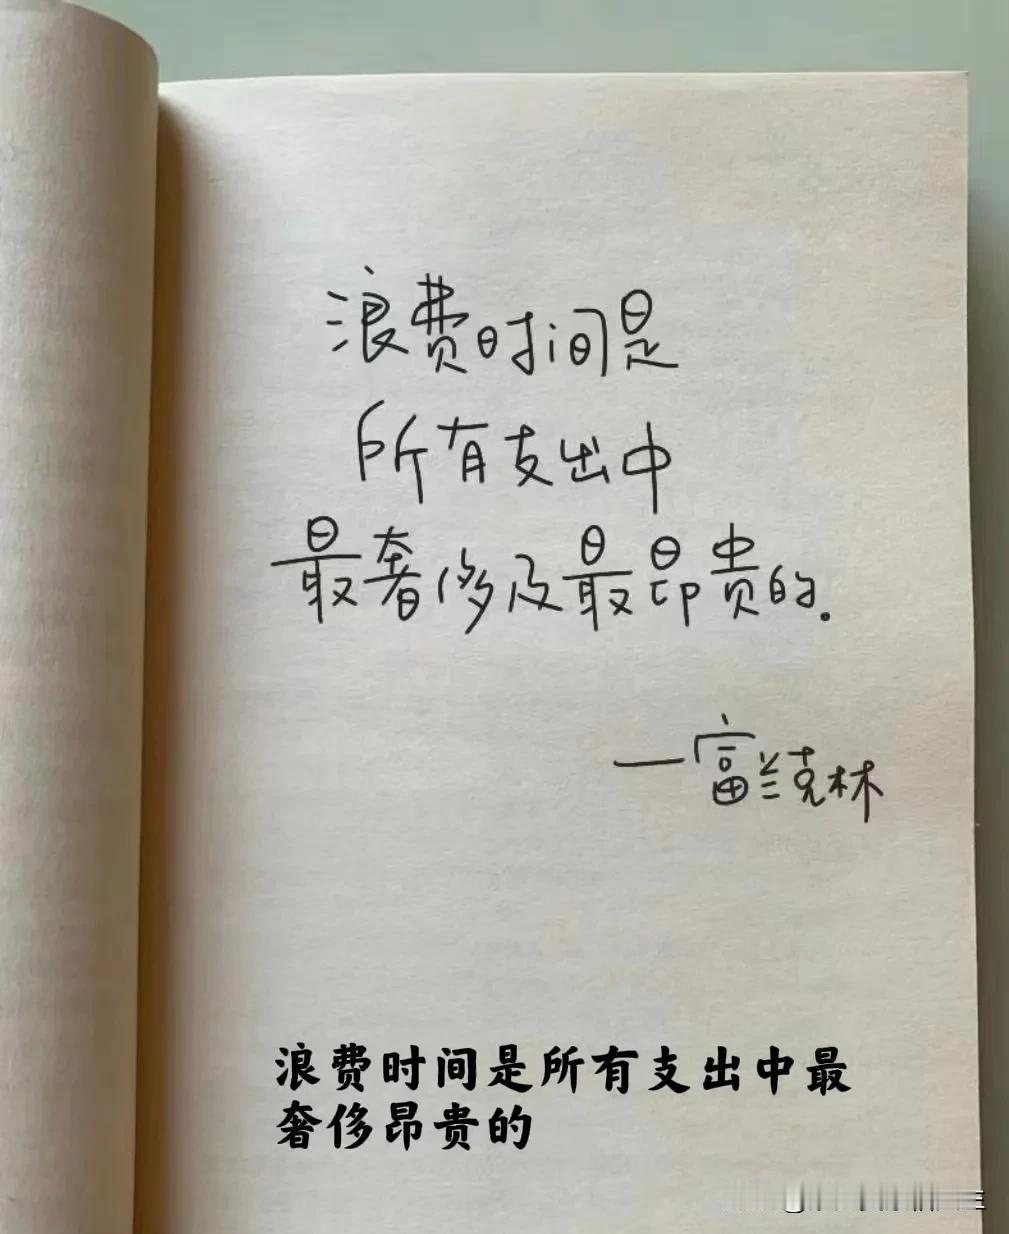 浪费时间是
所有支出中
最奢侈及最昂贵的.
—富兰克林
浪费时间是所有支出中最
奢侈昂贵的